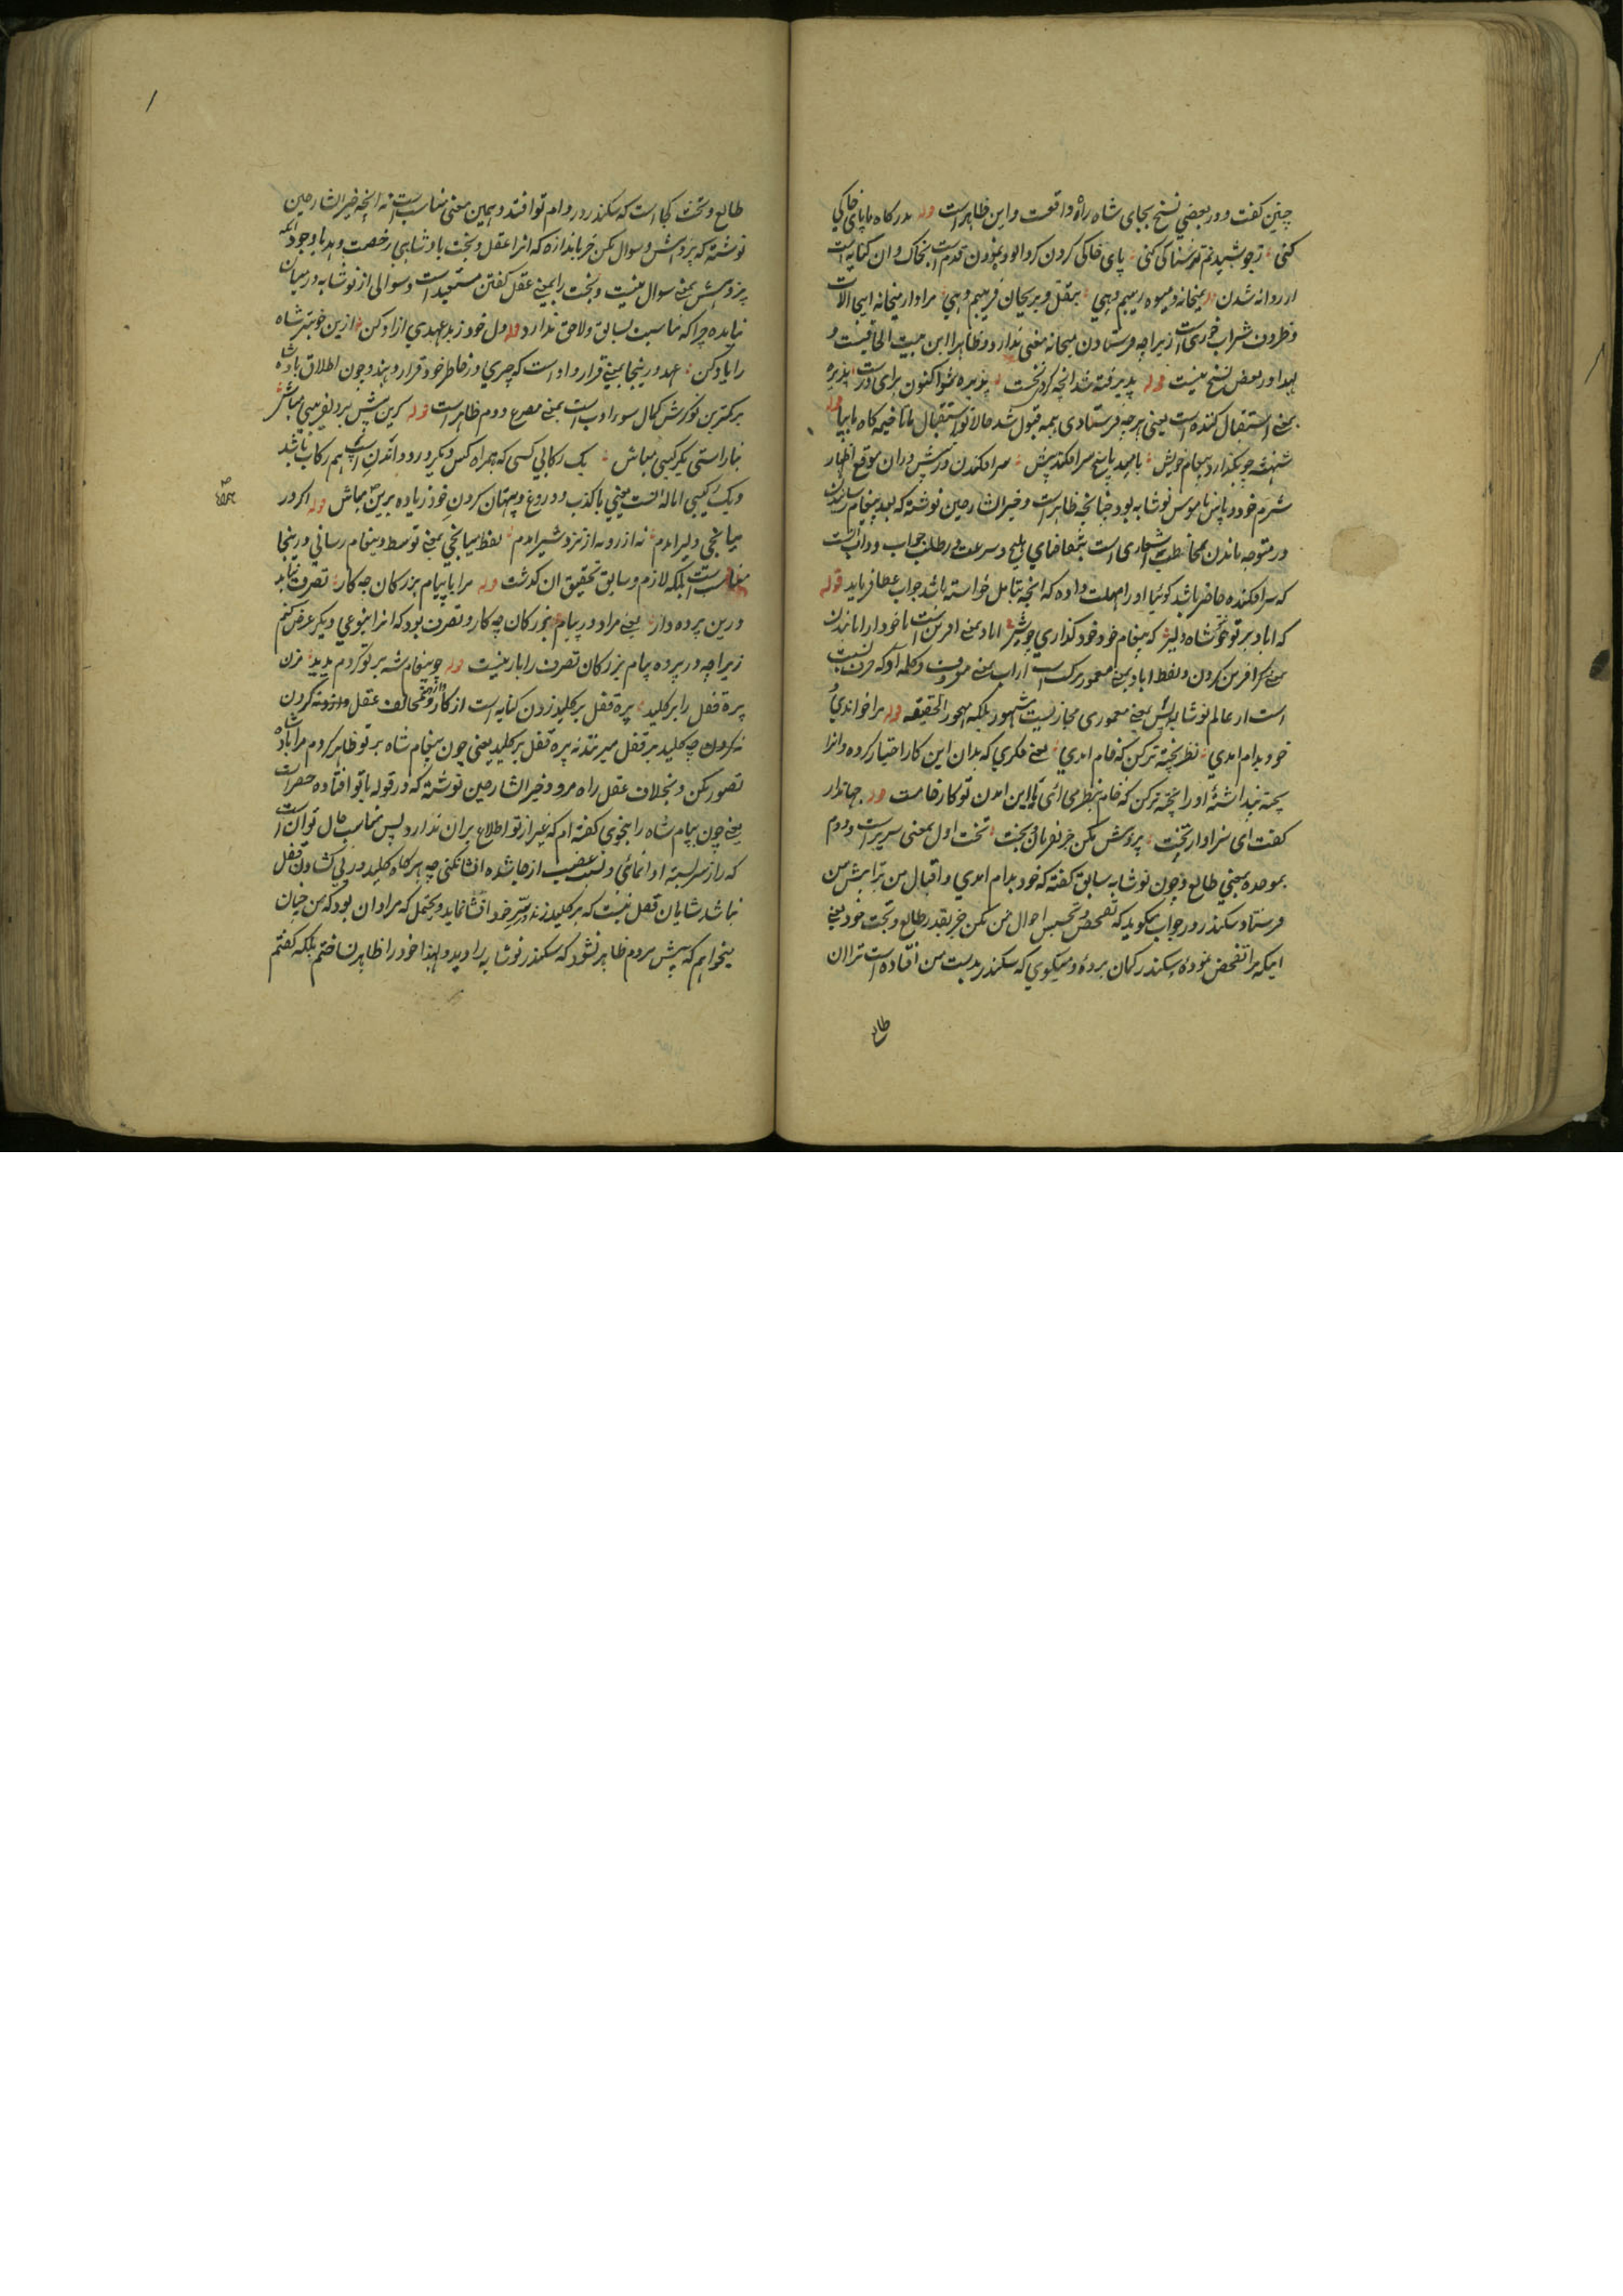 چنین گفت و در بعضی نسخ بجای شاه راه واقعست و این ظاهر است قوله بدرگاه ما پای خاکی
کنی ز جوشیدنم ترسناکی کنی پای خاکی کردن گردآلود نمودن قدم است بخاک و آن کنایه است
از روانه شدن میخانه و میوه زیبم دهی بنقل و بریحان فریبم دهی مراد از میخانه اینجا آلات
و ظروف شراب خوری است زیرا چه فرستادن میخانه معنی ندارد و ظاهرا این بیت الحاقیست و
لهذا در بعض نسخ نیست قوله پذیرفته شد آنچه کردی نخست پذیره شو اکنون برای درست پذیره
بمعنی استقبال کننده است یعنی هر چه فرستادی همه قبول شد حالا تو استقبال ما تا خیمه گاه ما بیا قوله
شهنشه چو بگذارد پیغام خویش بامید پاسخ سر افکند پیش سر افکندن در پیش در آن موقع اظهار
شرم خود و پاس ناموس نوشابه بود چنانچه ظاهر است و خیر الشارحین نوشته که بعد پیغام رسانیدن
در متوجه ماندن مخاطب اشعاری است بتقاضای بلیغ و سرعت در طلب جواب و دانست
که سر افکنده حاضر باشد گوئیا او را مهلت داده که آنچه بتامل خواسته باشد جواب عطا فرماید قوله
که آباد بر تو شاه دلیر که پیغام خود خود گذاری چو شیر آباد بمعنی آفرین است
بمعنی آفرین کردن و لفظ آباد بمعنی معمور مرکب است از آب بمعنی معروف و کلمه آد که حرف نسبت
است از عالم نوشابه پس بمعنی معموری مجاز نیست مشهور بلکه مهجور الحقیقه قوله مرا خواندی و
خود بدام آمدی نظر پخته تر کن که خام آمدی یعنی فکری که بدان این کار اختیار کرده و آنرا
پخته پنداشته او را پخته تر کن که خام بنظر می آئی یا این آمدن تو کار خامست قوله جهاندار
گفت ای سزاوار تخت پژوهش مکن جز بفرمان بخت تخت اول بمعنی سریر است و دوم
بموحده بمعنی طالع و چون نوشابه سابق گفته که خود بدام آمدی و اقبال من ترا پیش من
فرستاد سکندر در جواب میگوید که تفحص و تجسس احوال من مکن جز بقدر طالع و بخت خود یعنی
اینکه مرا تفحص نموده سکندر گمان برده و میگوی که سکندر بدست من افتاده است ترا آن
طالع
طالع و بخت کجا است که سکندر در دام تو افتد و همین معنی مناسب است نه آنچه خیر الشارحین
نوشته که پژوهش و سوال مکن جز باندازه که آنرا عقل و بخت بادشاهی رخصت دهد با وجود آنکه
پژوهش بمعنی سوال نیست و بخت را بمعنی عقل گفتن مستبعد است و سوالی از نوشابه در میان
نیامده چرا که مناسبت بسابق و لاحق ندارد قوله دل خود ز بدعهدی آزاد کن ازین خوبتر شاه
را یاد کن عهد در اینجا بمعنی قرار داد است که چیزی در خاطر خود قرار دهند و چون اطلاق بادشاه
بر کمترین نوکرش کمال سوء ادب است بمعنی مصرع دوم ظاهر است قوله کزین پس بر دلفریبی مباش
بناراستی یک رکیبی مباش یک رکابی کسی که همراه کس دیگر در دواندن اسپ هم رکاب باشد
و یک رکیبی اماله آنست یعنی با کذب و دروغ و بهتان کردن خود زیاده برین مباش قوله اگر در
میانجی دلیر آمدم نه از روبه از نزد شیر آمدم لفظ میانجی بمعنی توسط و پیغام رسانی در اینجا
مناسب است بلکه لازم و سابق تحقیق آن گذشت قوله مرا با پیام بزرگان چه کار تصرف نباید
درین پرده دار یعنی مرا در پیام بزرگان چه کار و تصرف بود که آنرا بنوعی دیگر عرض کنم
زیرا چه در پرده پیام بزرگان تصرف را بار نیست قوله چو پیغام شه بر تو کردم پدید مزن
پره قفل را بر کلید پره قفل بر کلید زدن کنایه است از کار مخالف عقل کردن
چه کلید بر قفل میزنند نه پره قفل بر کلید یعنی چون پیغام شاه بر تو ظاهر کردم مرا شاه
تصور مکن و بخلاف عقل راه مرو و خیر الشارحین نوشته که در قوله با تو افتاده حصر است
یعنی چون پیام شاه را بنجوی گفته ام که غیر از تو اطلاع بر آن ندارد پس مناسب حال تو آن است
که راز سر بسته ادا نمائی و بسبب غضب از جا شده افشا نکنی چه هر گاه کلید در پی کشادن قفل
نباشد شایان قفل نیست که بر کلید زند و سر خود افشا نماید و محتمل که مراد آن بود که من چنان
میخواهم که پیش مردم ظاهر نشود که سکندر نوشابه را دید و لهذا خود را ظاهر نساختم بلکه گفتم